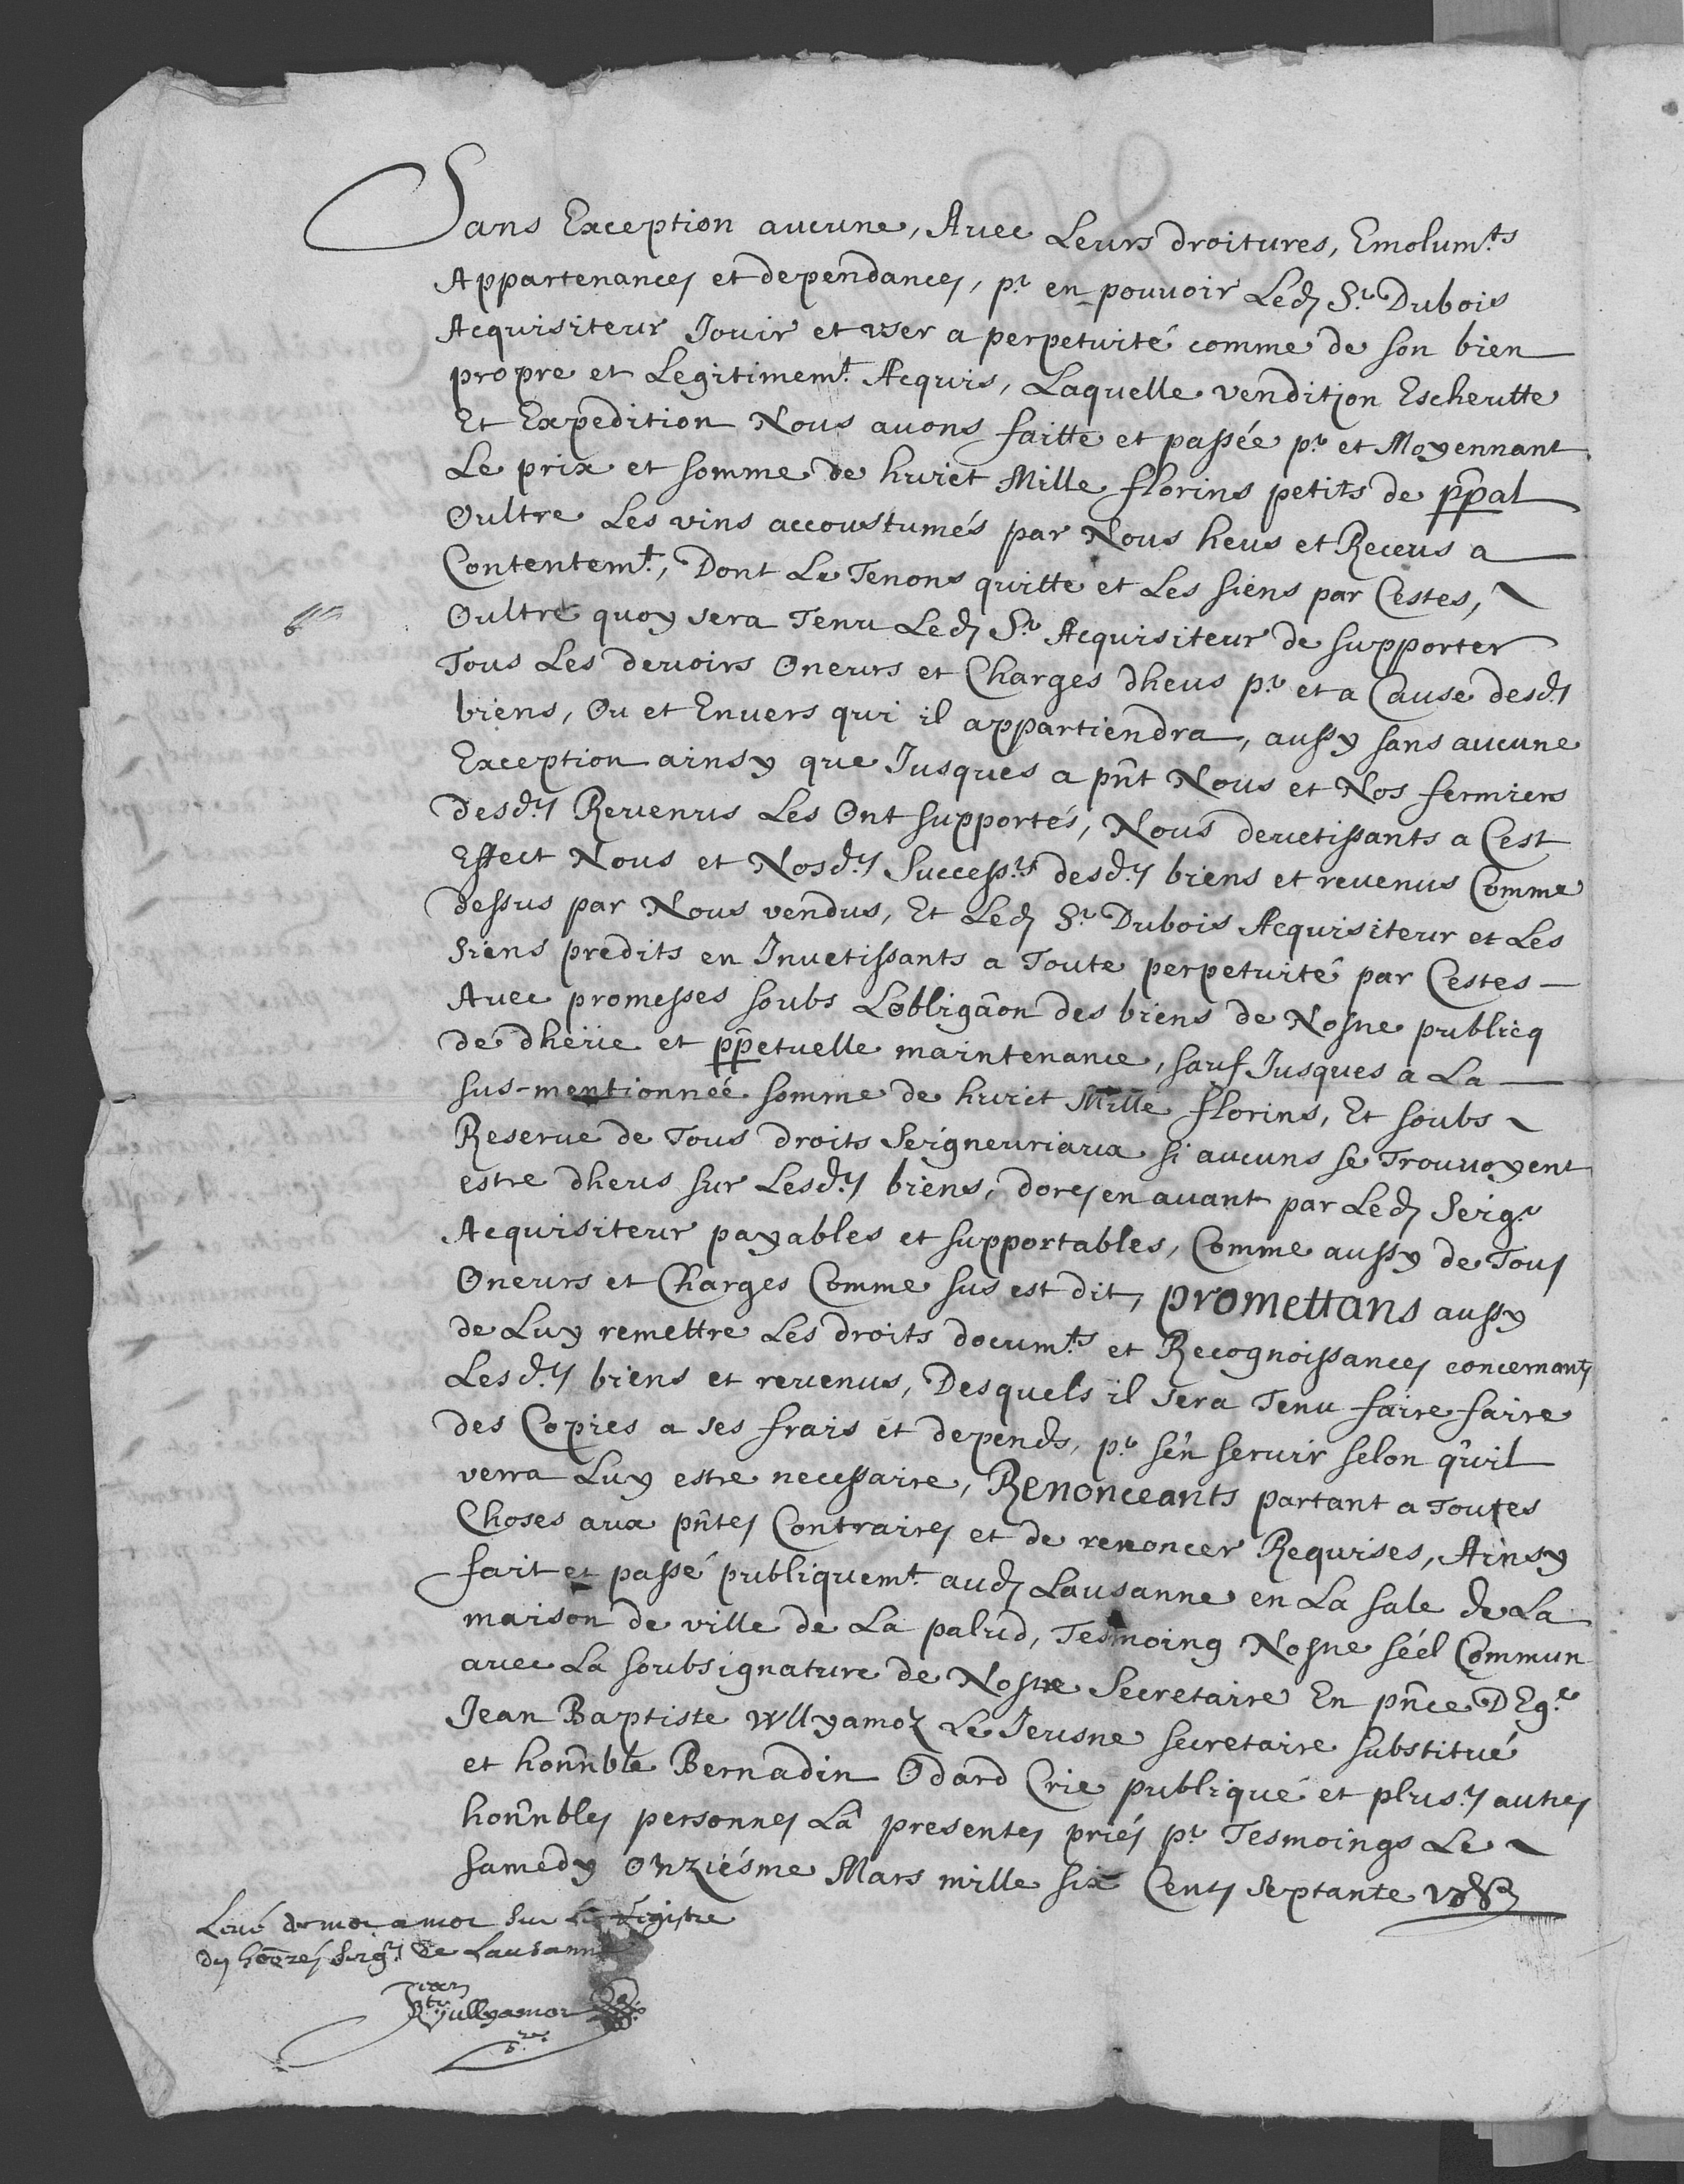 Sans Exception aucune, Avec Leurs droitures, Emolumts
Appartenances et dependances, pr en pouvoir Led Sr Dubois
Acquisiteur Jouir et user a perpetuité comme de son bien
propre et Legitimemt. Acquis, Laquelle vendition Escheutte
Et Expedition Nous auons faitte et passée pr et Moyennant
Le prix et somme de huict Mille florins petits de ppal
Oultre Les vins accoustumés par Nous heus et Receus a
Contentemt., Dont Le Tenons quitte et Les siens par Cestes,
Oultre quoy sera Tenu Led Sr Acquisiteur de supporter
Tous Les deuoirs Oneurs et Charges dheus pr et a Cause desds
biens, Ou et Enuers qui il appartiendra, aussy sans aucune
Exception ainsy que Jusques a pnt Nous et Nos fermiers
desd.s Reuenus Les Ont supportés, Nous deuetissants a Cest
Effect Nous et Nosd.s Success.rs desd.s biens et reuenus Comme
dessus par Nous vendus, Et Led Sr Dubois Acquisiteur et Les
Siens predits en Inuetissants a Toute perpetuité par Cestes
Auec promesses soubs Lobligaon des biens de Nostre publicq
de dheüe et ppetuelle maintenance, sauf Jusques a La
sus-mentionnée somme de huict Mille florins, Et soubs
Reserue de Tous droits Seigneuriaux si aucuns se Trouuoyent
estre dheus sur Lesd.s biens, doresenauant par Led Seigr
Acquisiteur payables et supportables, Comme aussy de Tous
Oneurs et Charges Comme sus est dit, promettans aussy
de Luy remettre Les droits documts et Recognoissances concernants
Lesd.s biens et reuenus, Desquels il sera Tenu faire faire
des Copies a ses frais et depends, pr sen seruir selon quil
verra Luy estre necessaire, Renonceants partant a Toutes
Choses aux pntes Contraires et de renoncer Requises, Ainsy
fait et passé publiquemt. aud Lausanne en La sale de La
maison de ville de La palud, Tesmoing Nostre séel Commun
auec La soubsignature de Nostre Secretaire En pnce DEg.
Jean Baptiste Wllyamoz Le Jeusne secretaire substitué
et honnble Bernadin Odard Crie publique et plus.s autres
honnbles personnes La presentes priés pr Tesmoings Le
samedy Onziésme Mars mille six Cents septante
Leué de mot a mot sur Le Registre
des honrés Seigrs de Lausanne
Jean
Bte. Vullyamoz